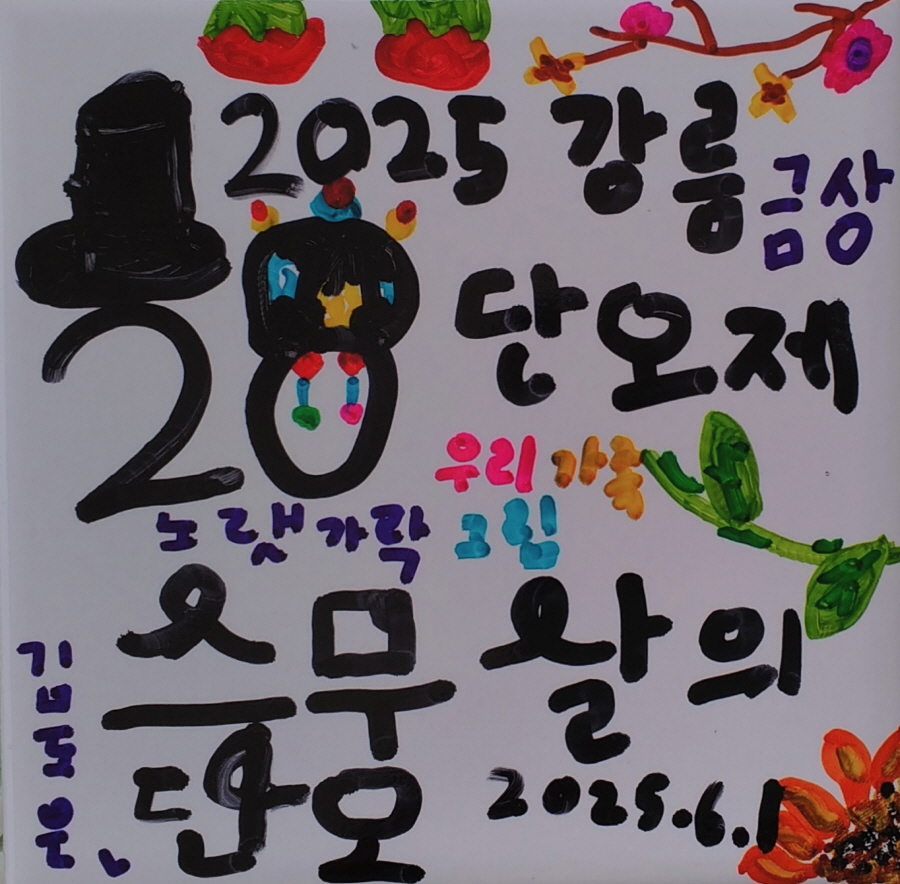 2025 강릉
금상
단오제
20
우리가족
노랫가락 그린
스무살의
단오
2025.6.1
김도윤